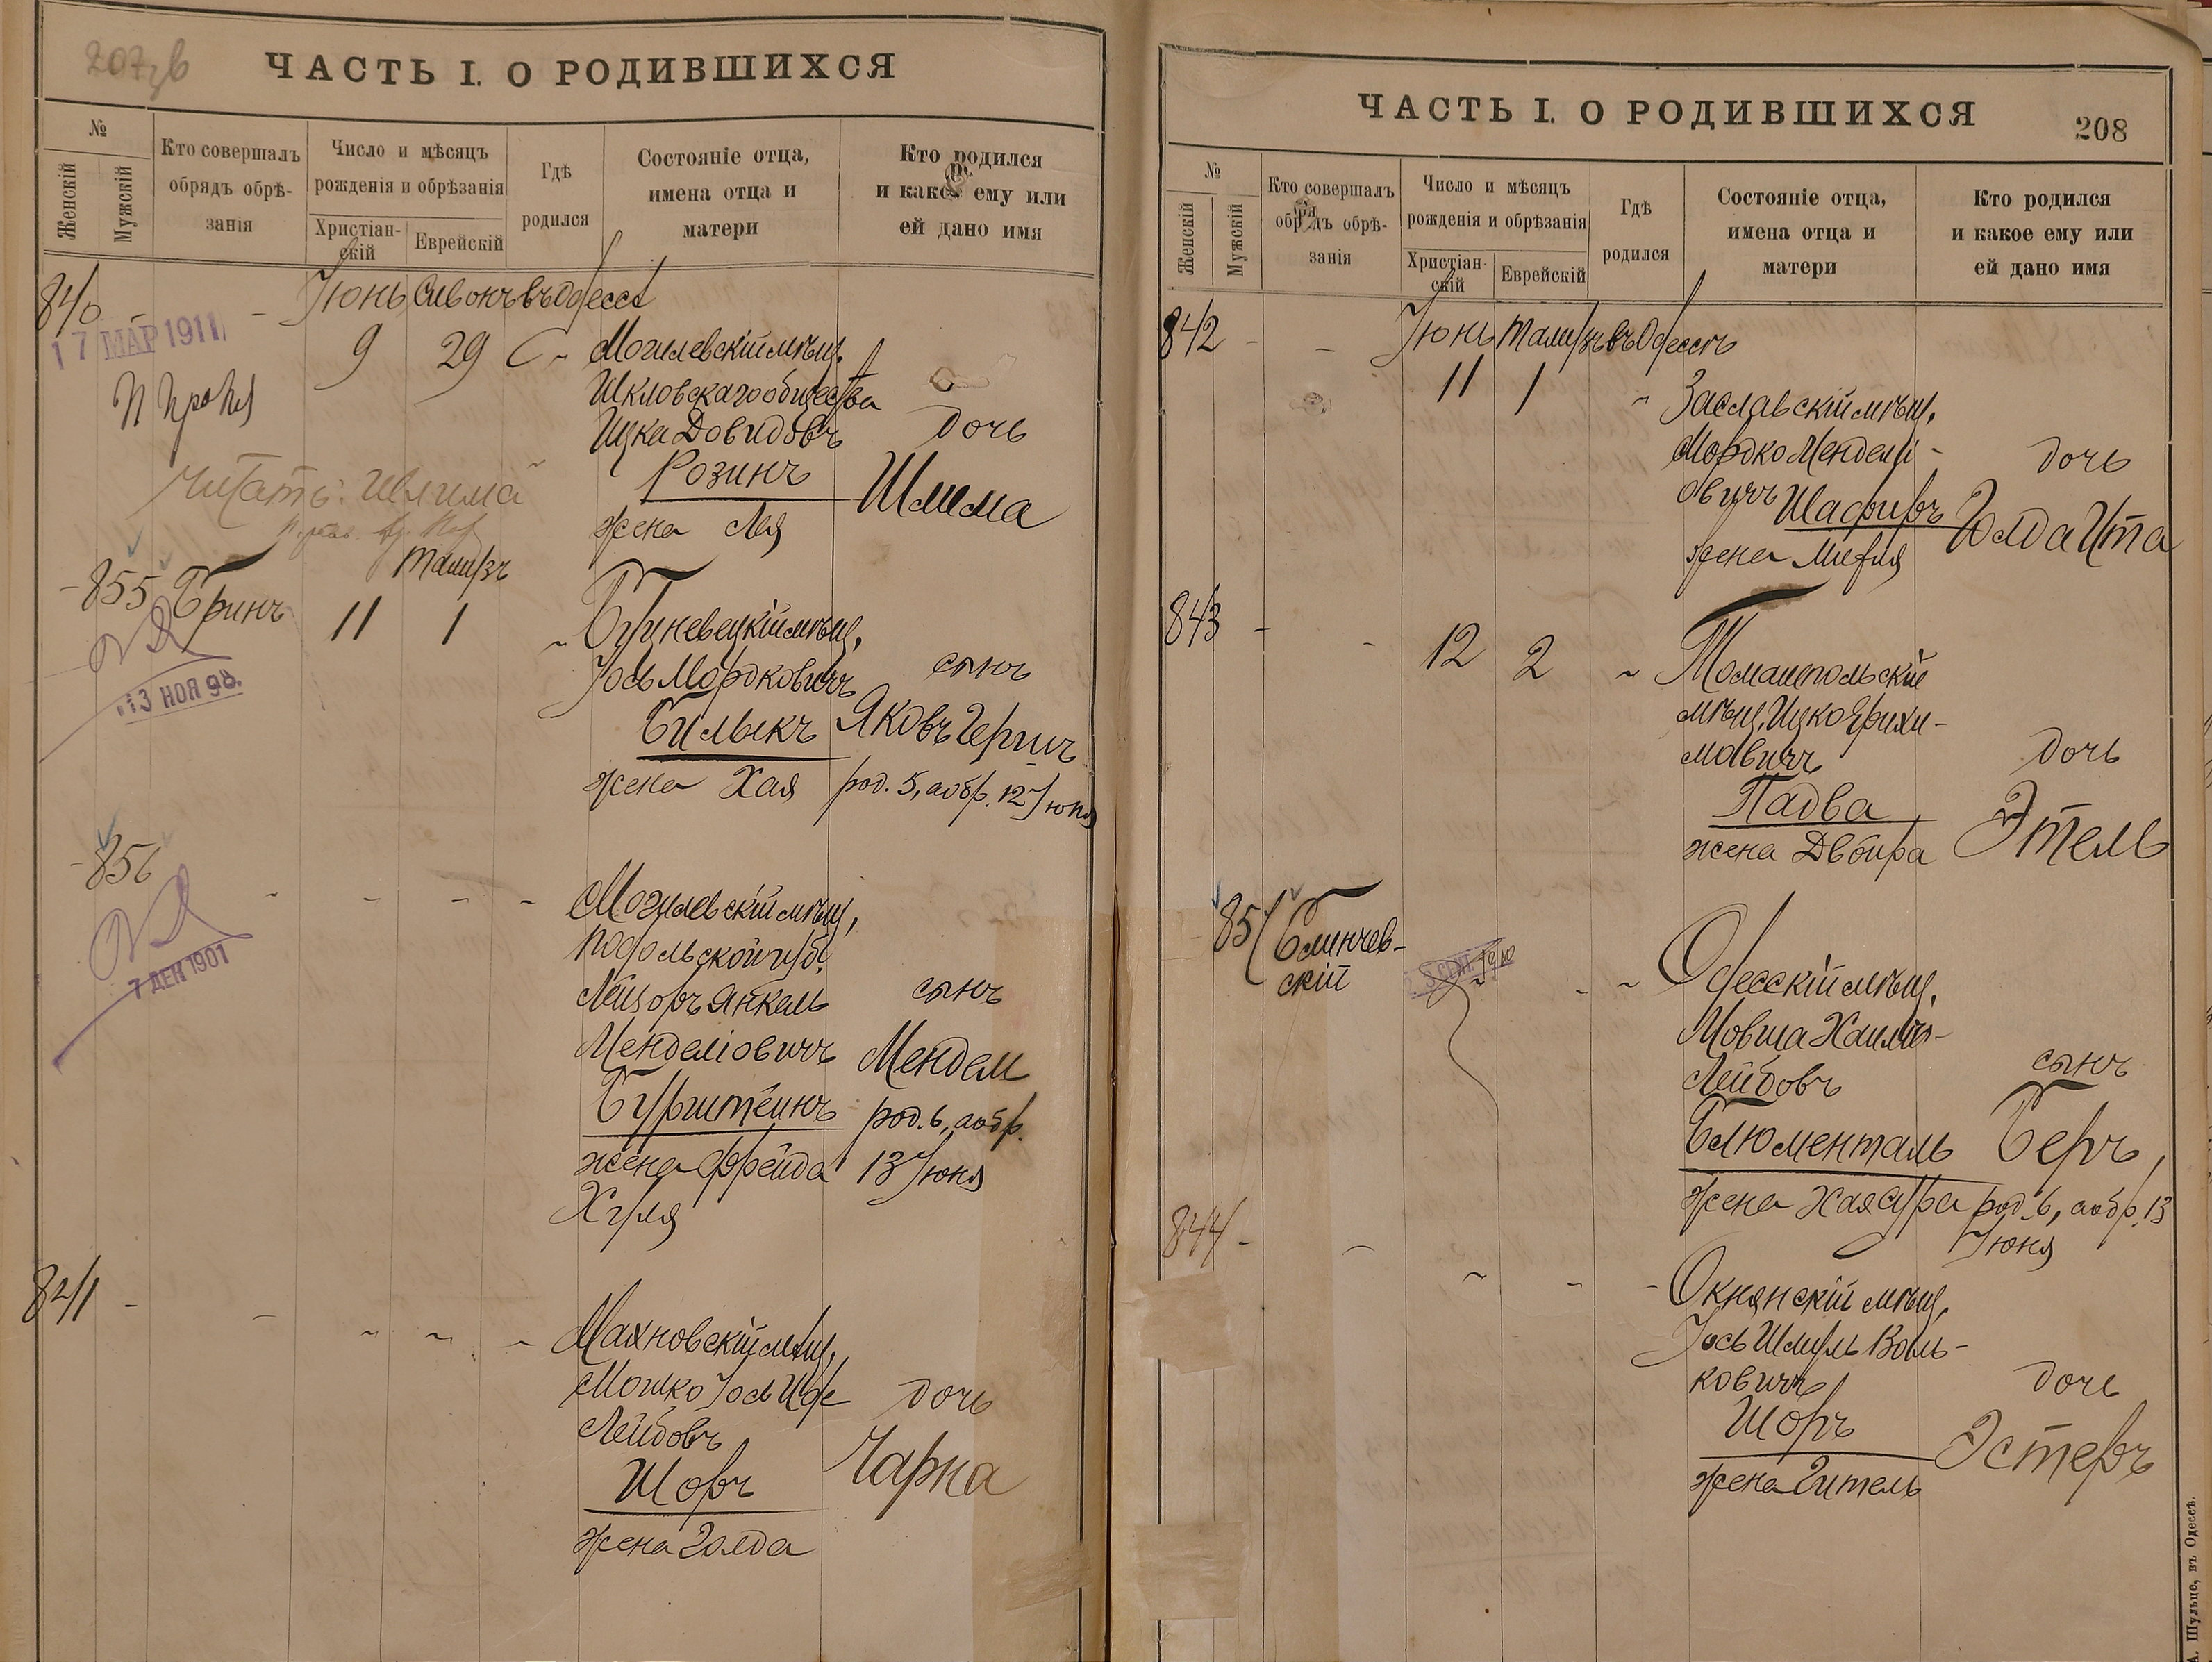 207 об
ЧАСТЬ I. О РОДИВШИХСЯ
№
Женскій
Мужскій
Кто совершалъ
обрядъ обрѣ-
занія
Число и мѣсяцъ
рожденія и обрѣзанія
Христіан-
скій
Еврейскій
Гдѣ
родился
Состояніе отца,
имена отца и
матери
Кто родился
и какое ему или
ей дано имя
840 - - Іюнь Сивонъ въ Одессѣ
17 МАР 1911
9 29 Могилевскій мѣщ.
Шкловскаго общества
Ицка Довидовъ дочь
Розинъ Шлима
жена Лея
Читать:
Тамузъ
- 855 Бринъ
11 1 мѣщ.
Іось Мордковичъ сынъ
Билыкъ Яковъ Гершъ
жена Хая род. 5, а обр. 12 Іюня
13 НОЯ 98.
- 856
- - - - Могилевскій мѣщ.,
Подольской губ.
Лейзоръ Янкель сынъ
Менделіовичъ Мендель
Бурштейнъ род. 6, а обр.
жена Фрейда 13 Іюня
Хуля
7 ДЕК 1901
841 -
- - - - Махновскій мѣщ.
Мошко Іось дочь
Лейбовъ
Шоръ Чарна
жена Голда
ЧАСТЬ I. О РОДИВШИХСЯ
208
№
Женскій
Мужскій
Кто совершалъ
обрядъ обрѣ-
занія
Число и мѣсяцъ
рожденія и обрѣзанія
Христіан-
скій
Еврейскій
Гдѣ
родился
Состояніе отца,
имена отца и
матери
Кто родился
и какое ему или
ей дано имя
842 - - Іюнь Тамузъ въ Одессѣ
11 1 " Заславскій мѣщ.
Мордко Мендели-
овичъ Шафиръ дочь
Голда Ита
жена
843 - - 12 2 " Томашпольскій
мѣщ. Ицко Ярихи-
мовичъ дочь
Падва Этель
жена Двойра
857 Блинчев-
скій
- - Одесскій мѣщ.
Мовша Хаимъ-
Лейбовъ сынъ
Блюменталь Беръ,
жена Хая Сура род. 6, а обр. 13
Іюня
844 -
- - - - Окнянскій мѣщ.
Іось Шмуль Воль-
ковичъ дочь
Шоръ Эстеръ
жена Гитель
А. Шульце, въ Одессѣ.